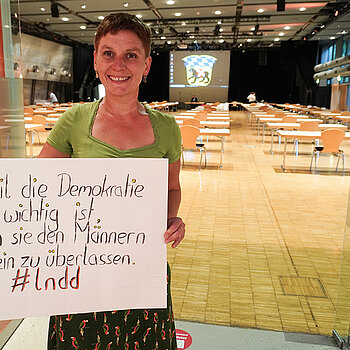 il die Demokratie
wichtig ist
sie den Männern
ein zu überlassen.
#lndd